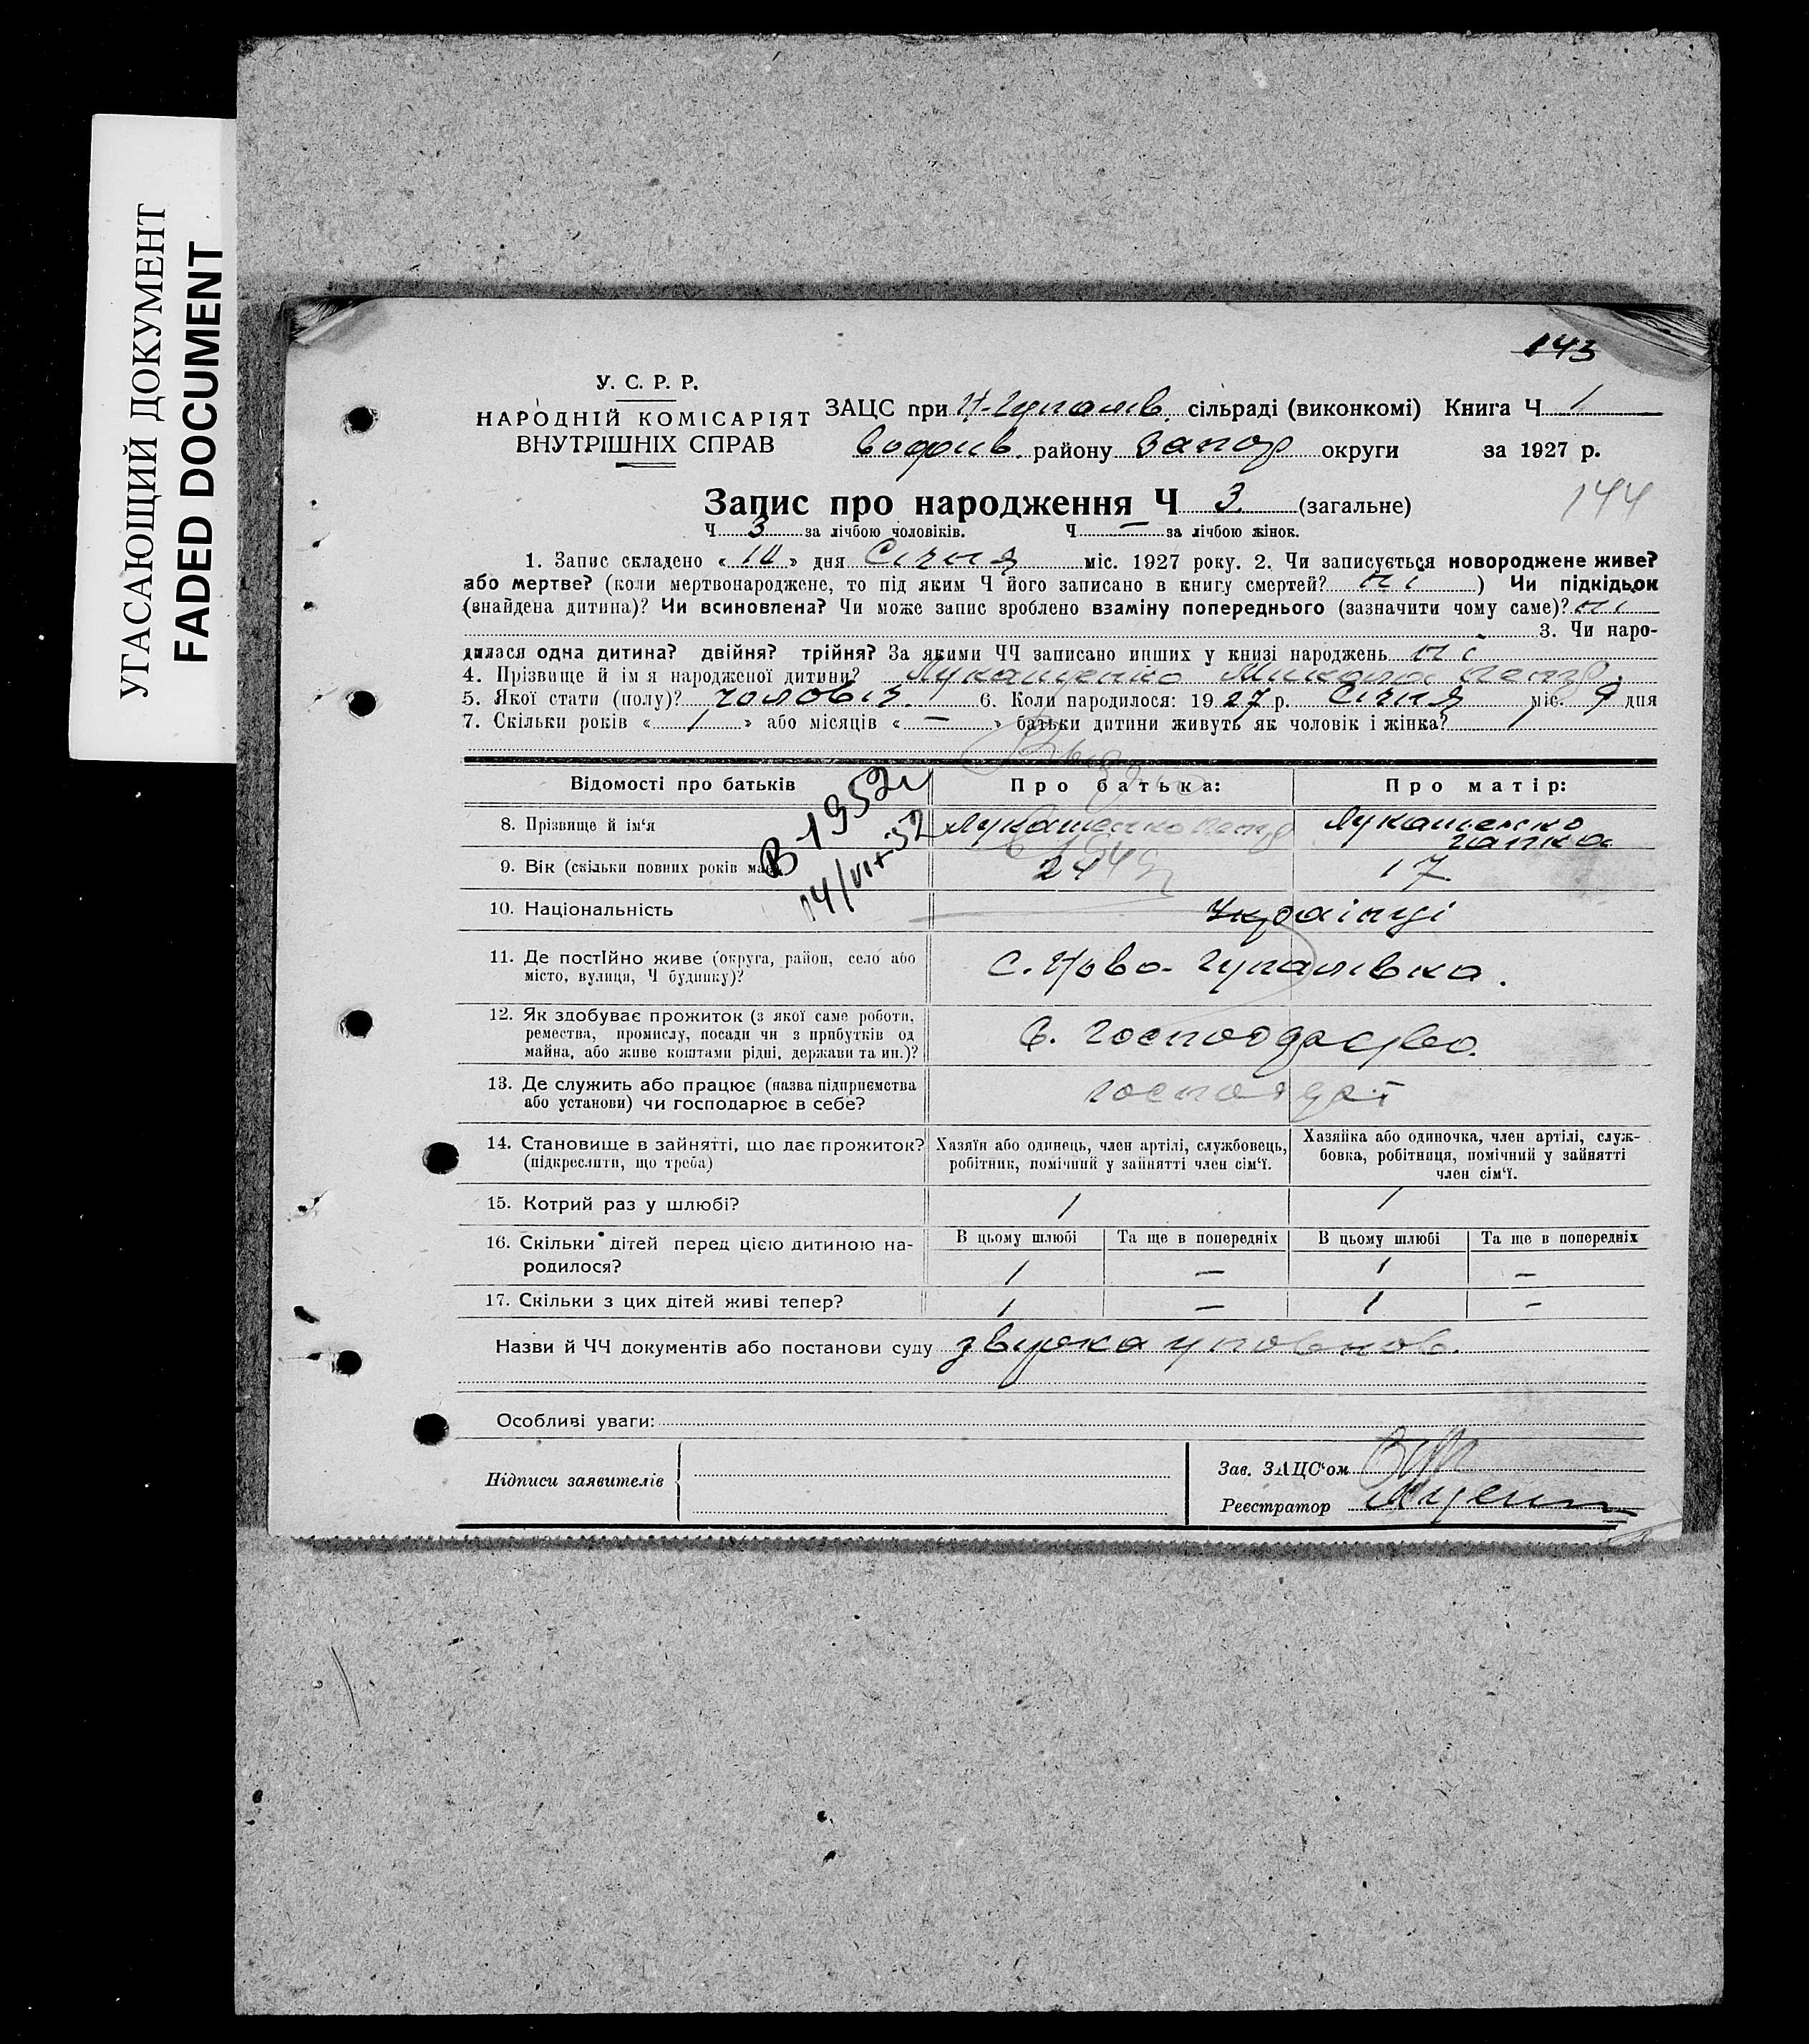 УГАСАЮЩИЙ ДОКУМЕНТ
FADED DOCUMENT
143
У. С. Р. Р.
НАРОДНІЙ КОМІСАРІЯТ
ВНУТРІШНІХ СПРАВ
ЗАЦС при Н-Гупалів. сільраді (виконкомі) Книга Ч 1
району Запор округи за 1927 р.
144
Запис про народження Ч 3. (загальне)
Ч 3 за лічбою чоловіків. Ч — за лічбою жінок.
1. Запис складено « 10 » дня Січня міс. 1927 року. 2. Чи записується новороджене живе?
або мертве? (коли мертвонароджене, то під яким Ч його записано в книгу смертей? ні ) Чи підкідьок
(знайдена дитина)? Чи всиновлена? Чи може запис зроблено взаміну попереднього (зазначити чому саме)? ні
3. Чи наро-
дилася одна дитина? двійня? трійня? За якими ЧЧ записано инших у книзі народжень ні
4. Прізвище й імя народженої дитини? Лукашенко Микола Петр.
5. Якої стати (полу)? чоловіч. 6. Коли народилося: 1927 р. Січня міс. 9 дня
7. Скільки років « 1 » або місяців « — » батьки дитини живуть як чоловік і жінка?
Відомості про батьків
Про батька:
Про матір:
В-1952
14/VI-52
8. Прізвище й ім'я
Лукашенко Петр
Лукашенко
Ганна
9. Вік (скільки повних років має)
24
17
10. Національність
Українці
11. Де постійно живе (округа, район, село або
місто, вулиця, Ч будинку)?
с. Ново-Гупалівка.
12. Як здобуває прожиток (з якої саме роботи,
ремества, промислу, посади чи з прибутків од
майна, або живе коштами рідні, держави та ин.)?
С. Господарство.
13. Де служить або працює (назва підприємства
або установи) чи господарює в себе?
14. Становище в зайнятті, що дає прожиток?
(підкреслити, що треба)
Хазяїн або одинець, член артілі, службовець,
робітник, помічний у зайнятті член сім'ї.
Хазяйка або одиночка, член артілі, служ-
бовка, робітниця, помічний у зайнятті
член сім'ї.
15. Котрий раз у шлюбі?
1
1
16. Скільки дітей перед цією дитиною на-
родилося?
В цьому шлюбі
Та ще в попередніх
В цьому шлюбі
Та ще в попередніх
1
—
1
—
17. Скільки з цих дітей живі тепер?
1
—
1
—
Назви й ЧЧ документів або постанови суду
уповнов.
Особливі уваги:
Підписи заявителів
Зав. ЗАЦС'ом
Реєстратор